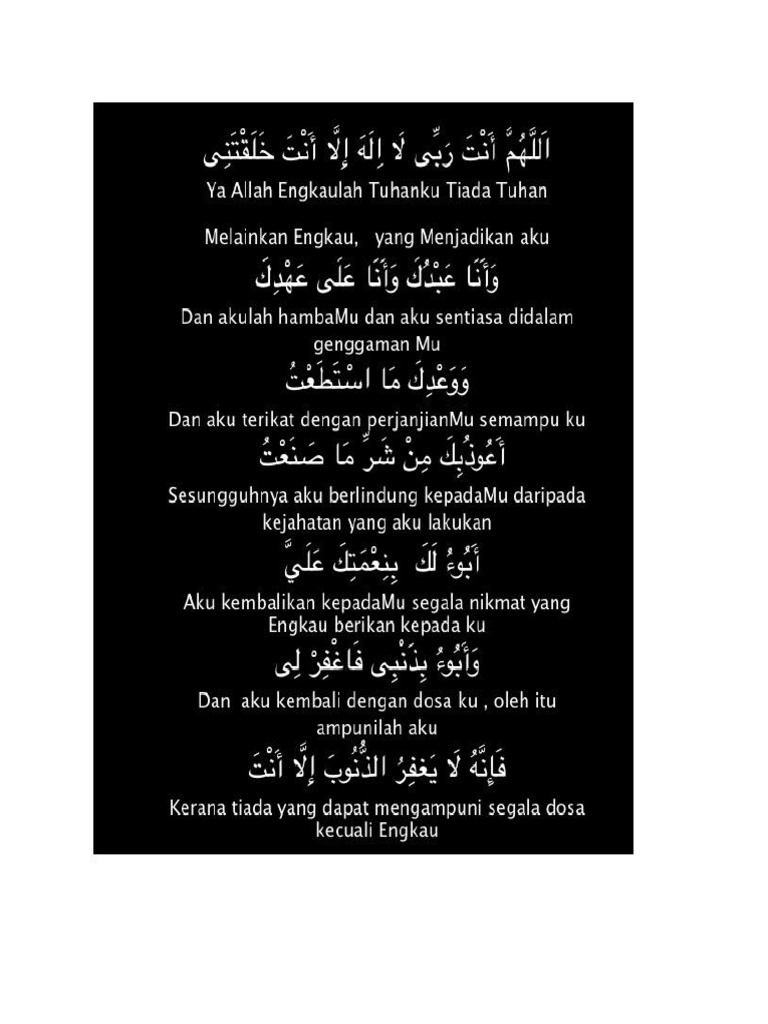 اَللَّهُمَّ أَنْتَ رَبِّى لَا اِلَهَ إِلَّا أَنْتَ خَلَقْتَنِى
Ya Allah Engkaulah Tuhanku Tiada Tuhan
Melainkan Engkau, yang Menjadikan aku
وَأَنَا عَبْدُكَ وَأَنَا عَلَى عَهْدِكَ
Dan akulah hambaMu dan aku sentiasa didalam
genggaman Mu
وَوَعْدِكَ مَا اسْتَطَعْتُ
Dan aku terikat dengan perjanjianMu semampu ku
أَعُوذُبِكَ مِنْ شَرِّ مَا صَنَعْتُ
Sesungguhnya aku berlindung kepadaMu daripada
kejahatan yang aku lakukan
أَبُوءُ لَكَ بِنِعْمَتِكَ عَلَيَّ
Aku kembalikan kepadaMu segala nikmat yang
Engkau berikan kepada ku
وَأَبُوءُ بِذَنْبِى فَاغْفِرْ لِى
Dan aku kembali dengan dosa ku , oleh itu
ampunilah aku
فَإِنَّهُ لَا يَغْفِرُ الذُّنُوبَ إِلَّا أَنْتَ
Kerana tiada yang dapat mengampuni segala dosa
kecuali Engkau